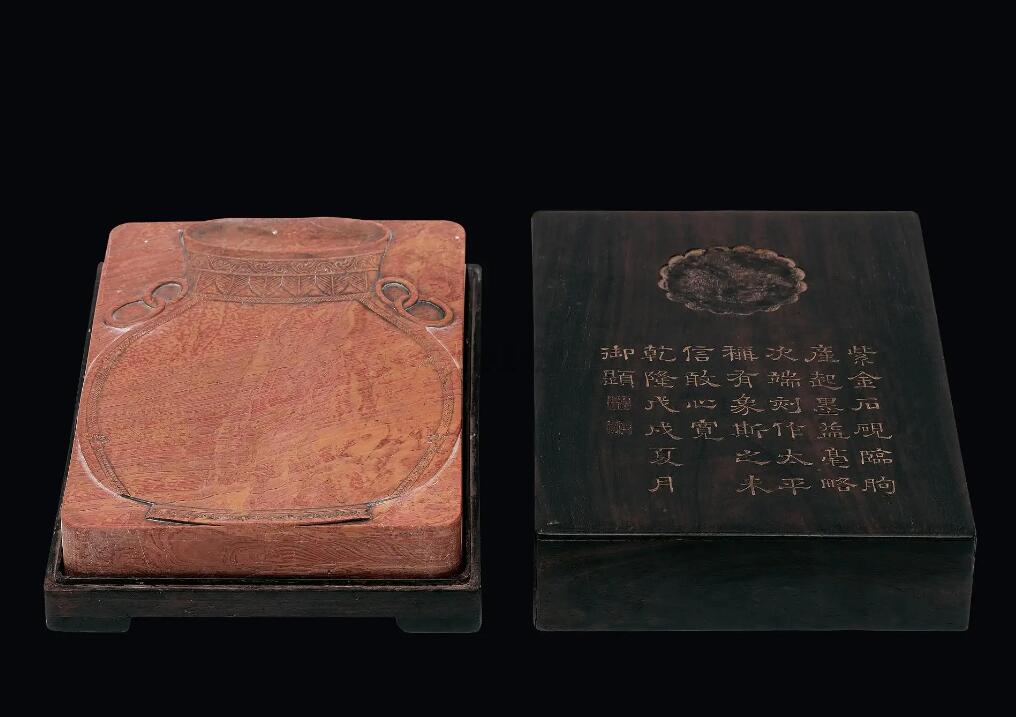 紫金石硯臨朐
産起墨益毫略
次端刻作太平
稱有象斯之未
信敢心寬
乾隆戊戌夏月
御題